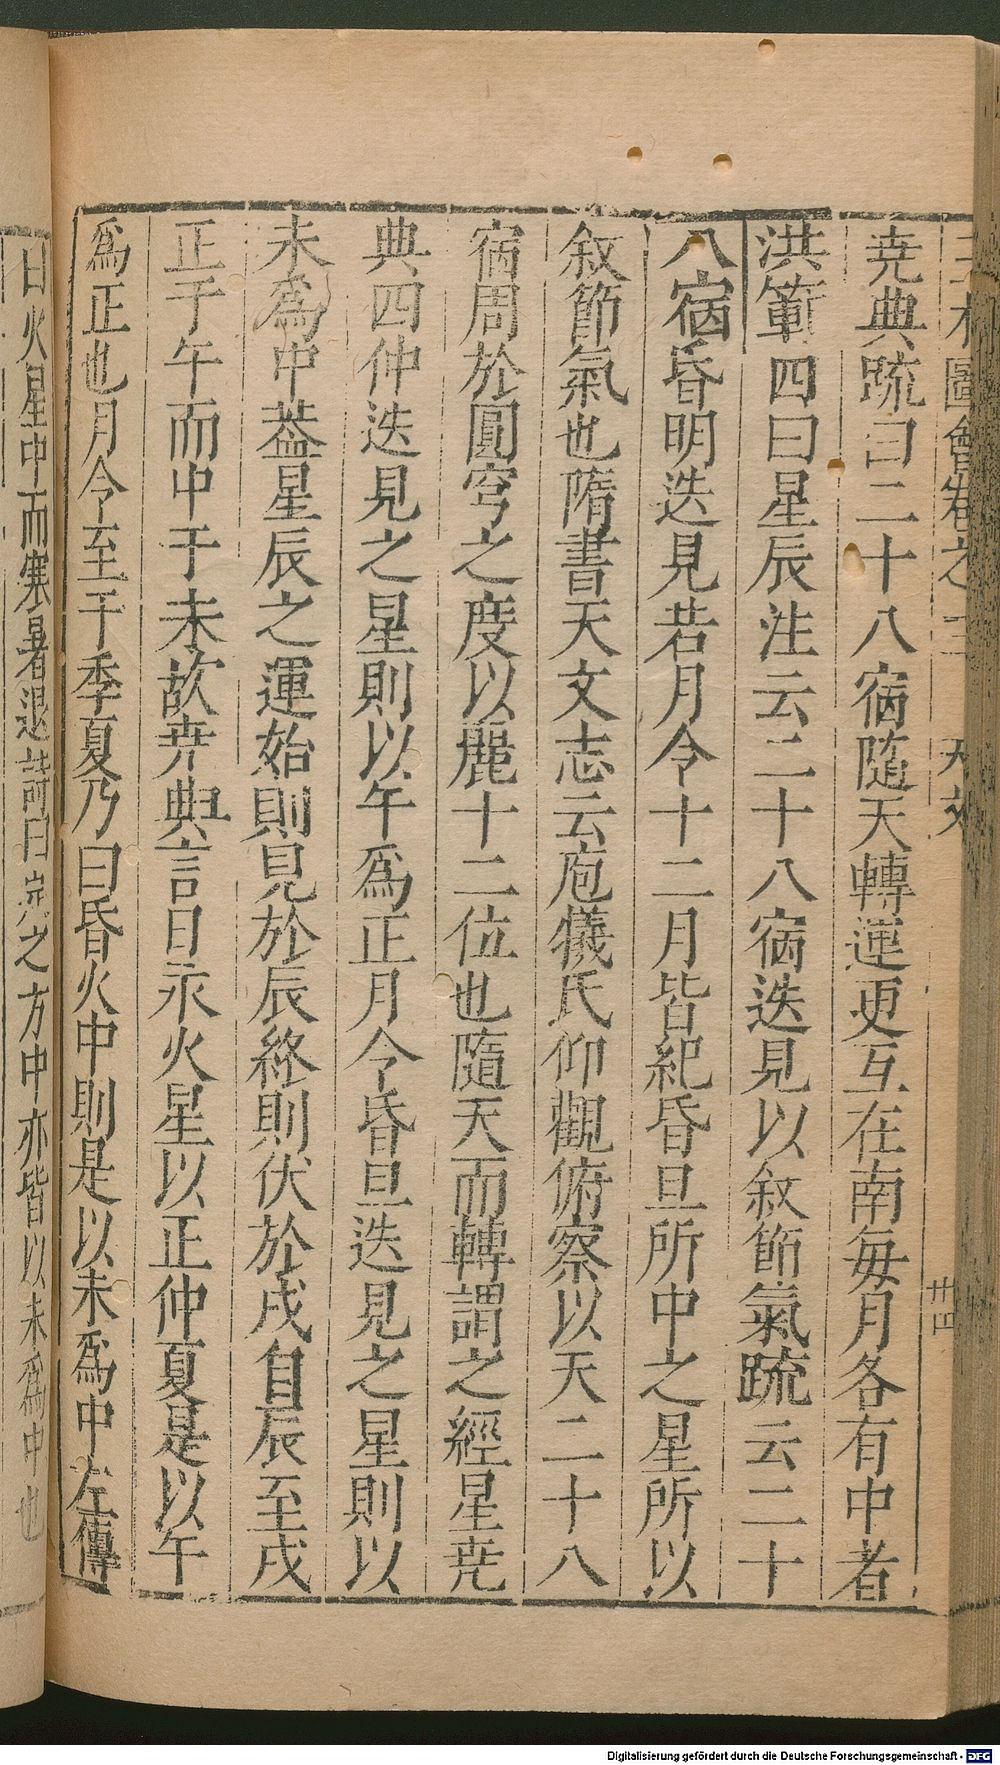 三才圖會卷之三 天文 廿四
堯典疏曰二十八宿隨天轉運更互在南每月各有中者
洪範四曰星辰注云二十八宿迭見以敘節氣疏云二十
八宿昏明迭見若月令十二月皆紀昏旦所中之星所以
敘節氣也隋書天文志云庖犧氏仰觀俯察以天二十八
宿周於圓穹之度以麗十二位也隨天而轉謂之經星堯
典四仲迭見之星則以午爲正月令昏旦迭見之星則以
未爲中葢星辰之運始則見於辰終則伏於戌自辰至戌
正于午而中于未故堯典言日永火星以正仲夏是以午
爲正也月令至于季夏乃曰昏火中則是以未爲中左傳
曰火星中而寒暑退詩曰定之方中亦皆以未爲中也
Digitalisierung gefördert durch die Deutsche Forschungsgemeinschaft - DFG